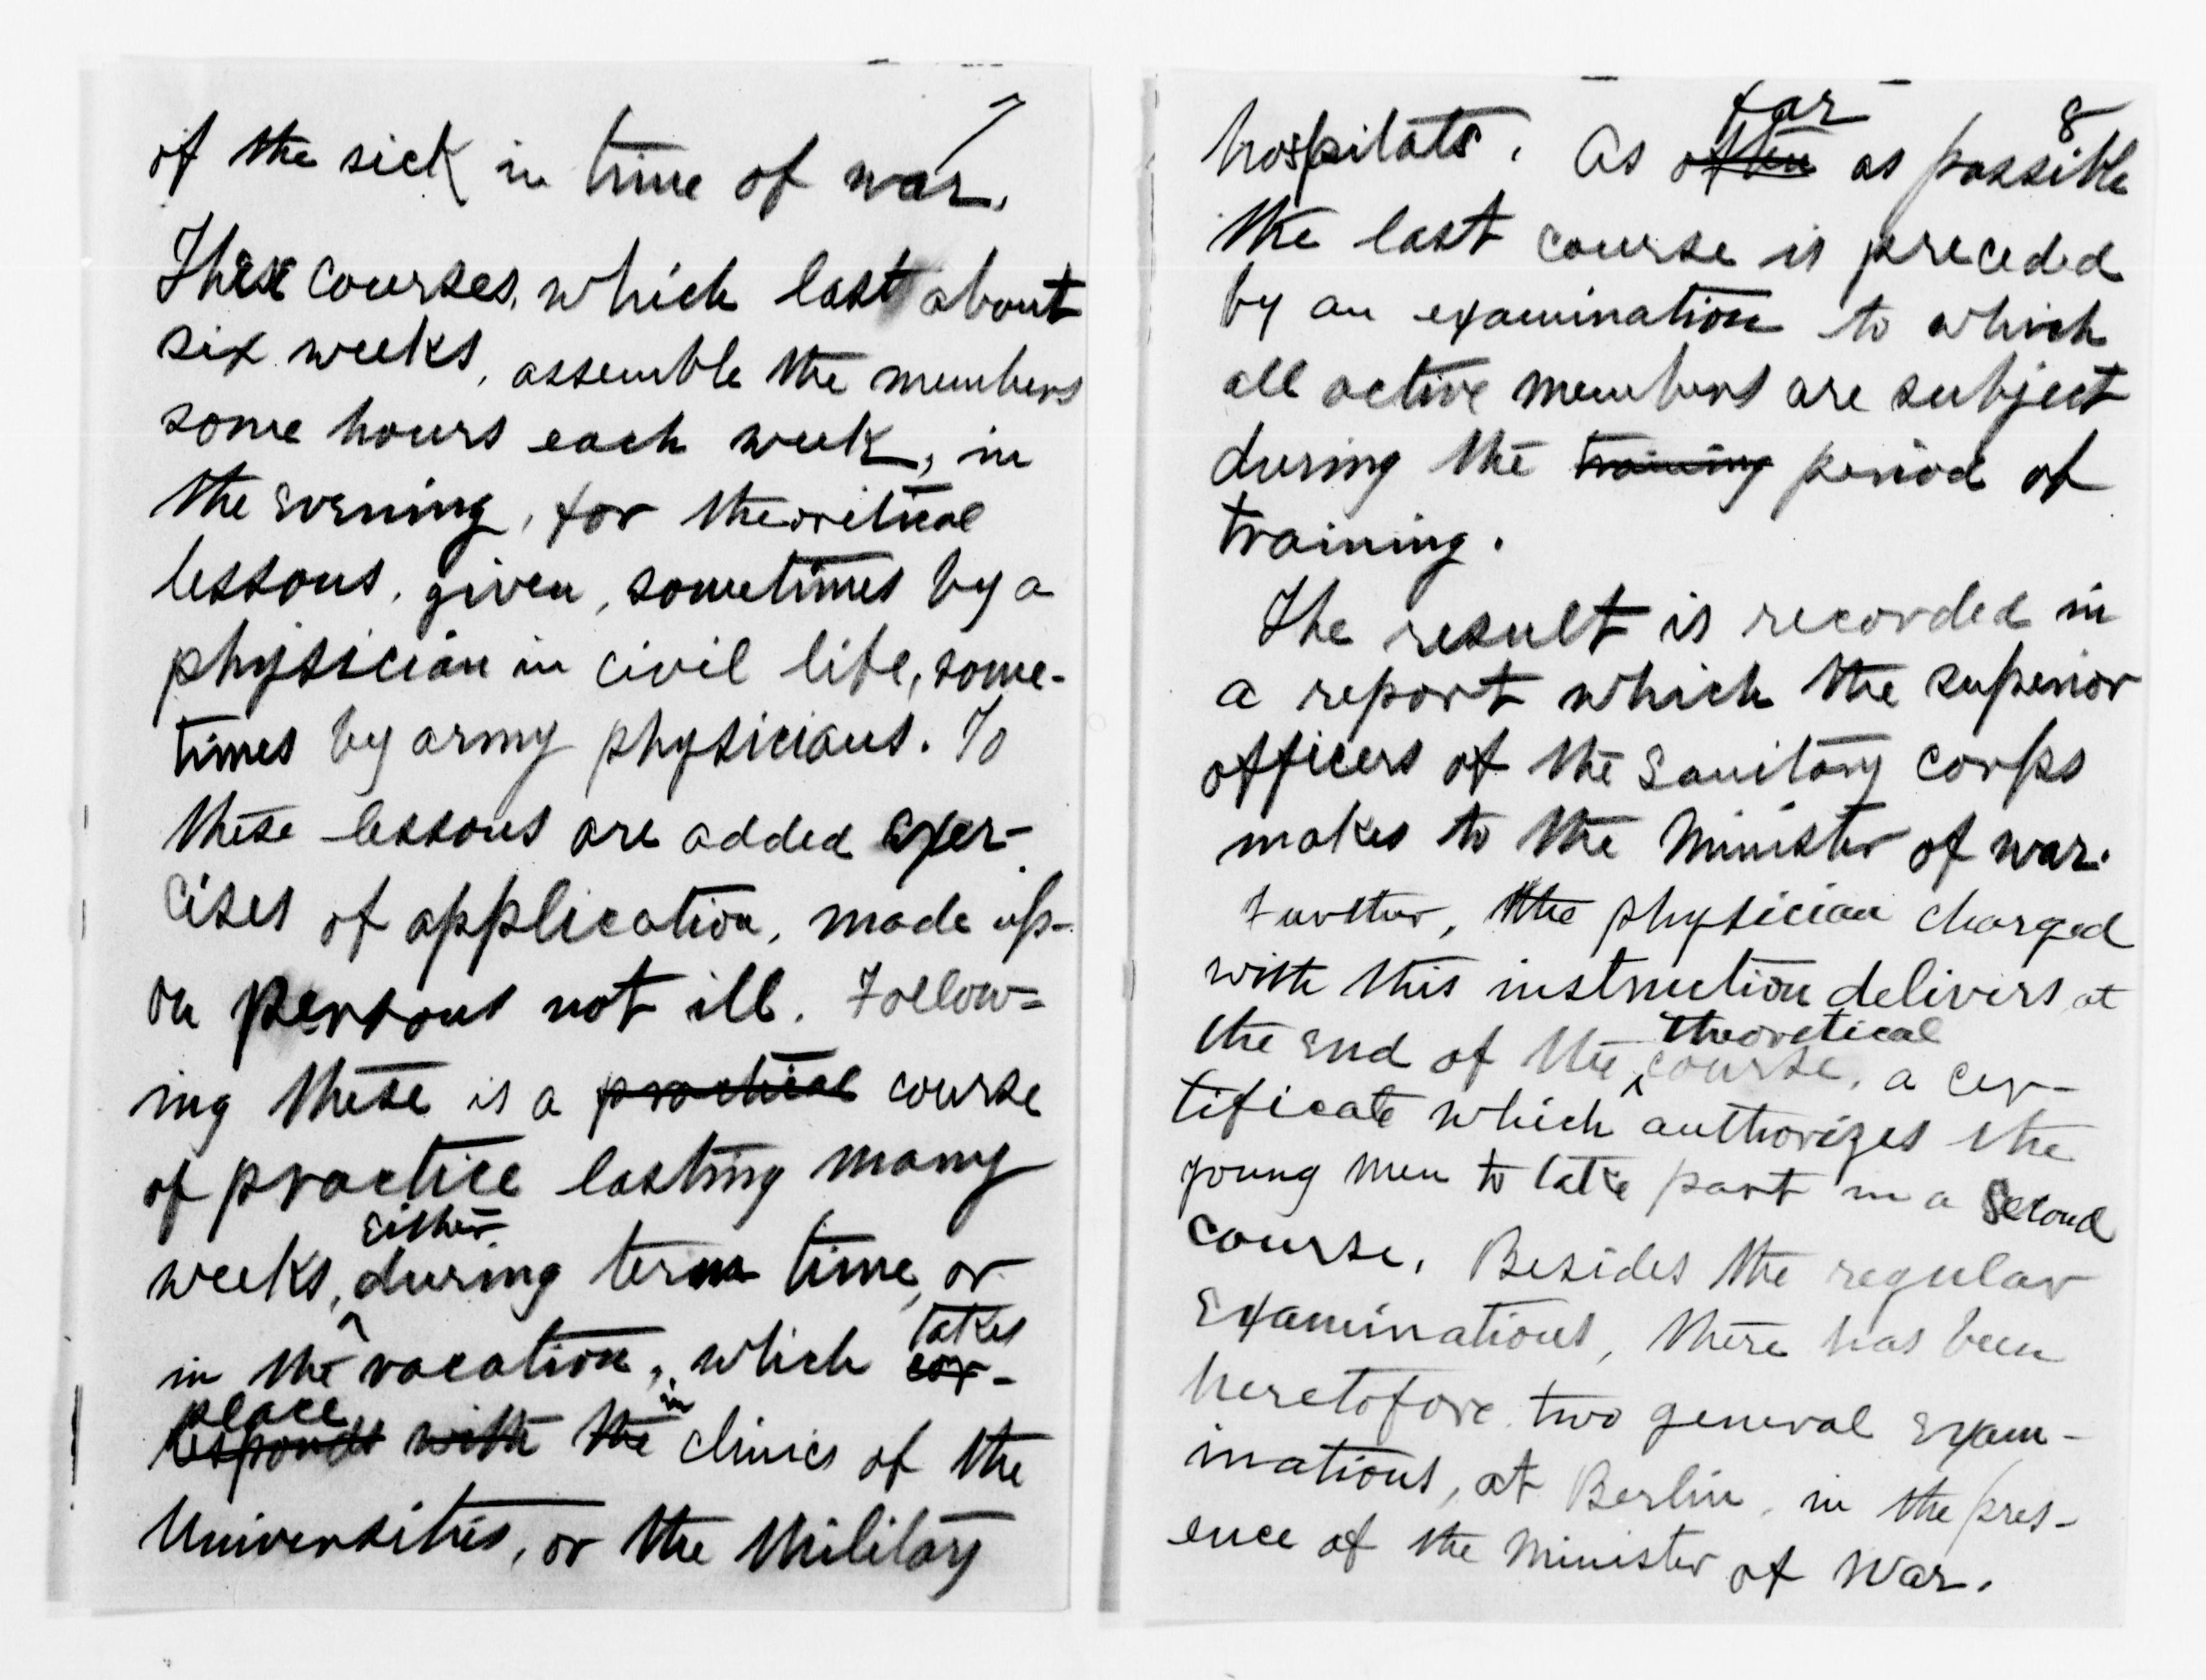 7
of the sick in time of war.
These courses, which last about
six weeks, assemble the members
some hours each week, in
the evening, for theoritical
lessons, given, sometimes by a
physician in civil life, some-
times by army physicians. To
these lessons are added exer-
cises of application, made up-
on persons not ill. Follow=
ing these is a practical course
of practice lasting many
either
weeks, during term time, or
takes
in the vacation, which cor-
place in
responds with the clinics of the
Universities, or the Military
8
far
hospitals. As often as possible
the last course is preceded
by an examination to which
all active members are subject
during the training period of
training.
The result is recorded in
a report which the superior
officers of the Sanitary corps
makes to the Minister of war.
Further, the physician charged
with this instruction delivers at
theoretical
the end of the course, a cer-
tificate which authorizes the
young men to take part in a second
course. Besides the regular
examinations, there has been
heretofore two general exam-
inations, at Berlin, in the pres-
ence of the Minister of War.